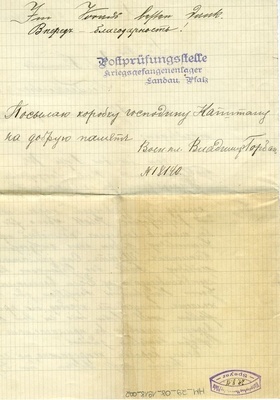 Im Voraus besten Dank.
Впередъ - благодарность!
Postprüfungsstelle
Kriegsgefangenenlager
Landau, Pfalz
Посылаю коробку господину Капитану
на добрую память
Военпл. Владимир
N 18190.